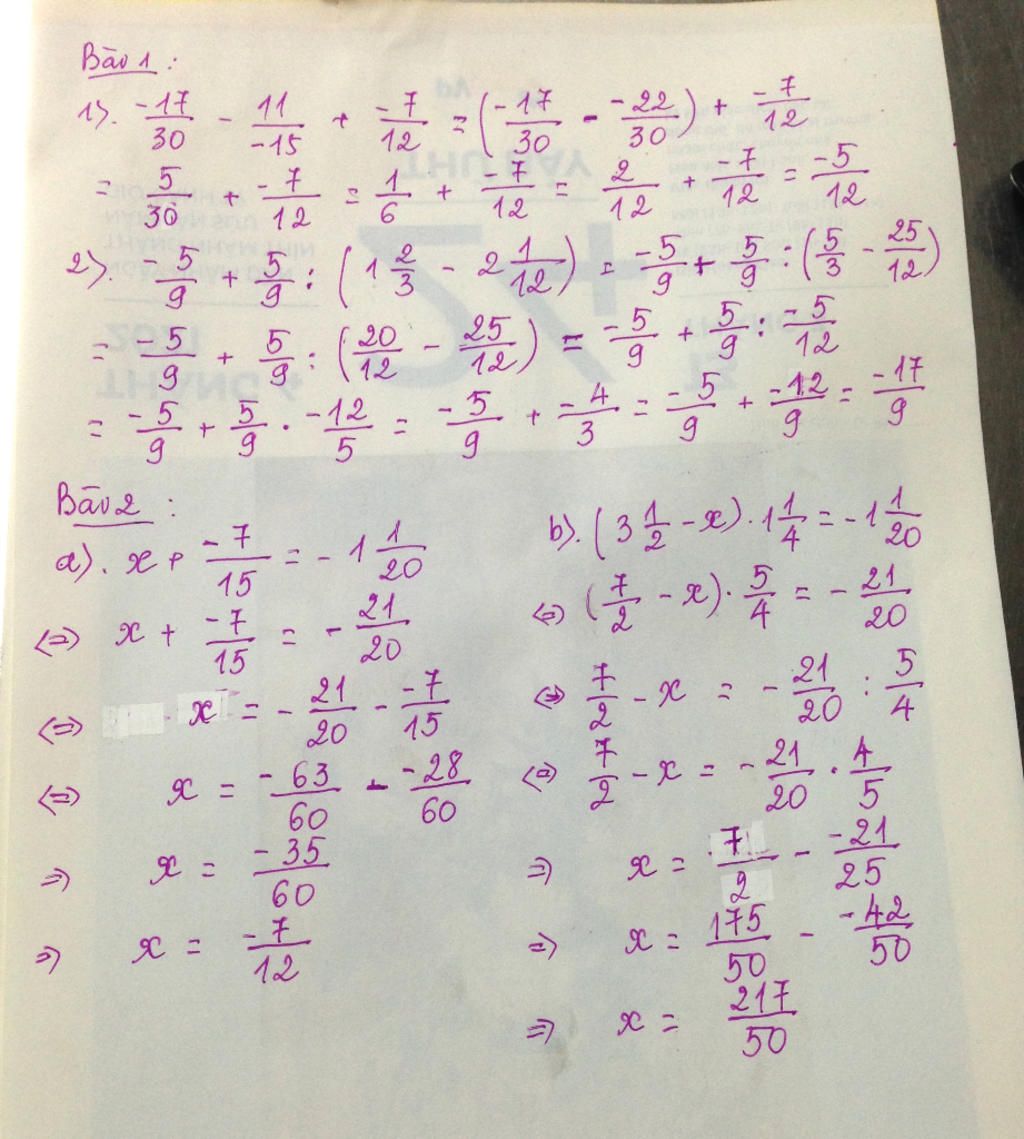 Bài 1 :
1). -17/30 - 11/-15 + -7/12 = (-17/30 - -22/30) + -7/12
= 5/30 + -7/12 = 1/6 + -7/12 = 2/12 + -7/12 = -5/12
2). -5/9 + 5/9 : (1 2/3 - 2 1/12) = -5/9 + 5/9 : (5/3 - 25/12)
= -5/9 + 5/9 : (20/12 - 25/12) = -5/9 + 5/9 : -5/12
= -5/9 + 5/9 . -12/5 = -5/9 + -4/3 = -5/9 + -12/9 = -17/9
Bài 2 :
a). x + -7/15 = - 1 1/20
<=> x + -7/15 = - 21/20
<=> x = - 21/20 - -7/15
<=> x = -63/60 - -28/60
=> x = -35/60
=> x = -7/12
b). (3 1/2 - x) . 1 1/4 = - 1 1/20
<=> (7/2 - x) . 5/4 = - 21/20
<=> 7/2 - x = - 21/20 : 5/4
<=> 7/2 - x = - 21/20 . 4/5
=> x = 7/2 - -21/25
=> x = 175/50 - -42/50
=> x = 217/50
2021
THÁNG 4